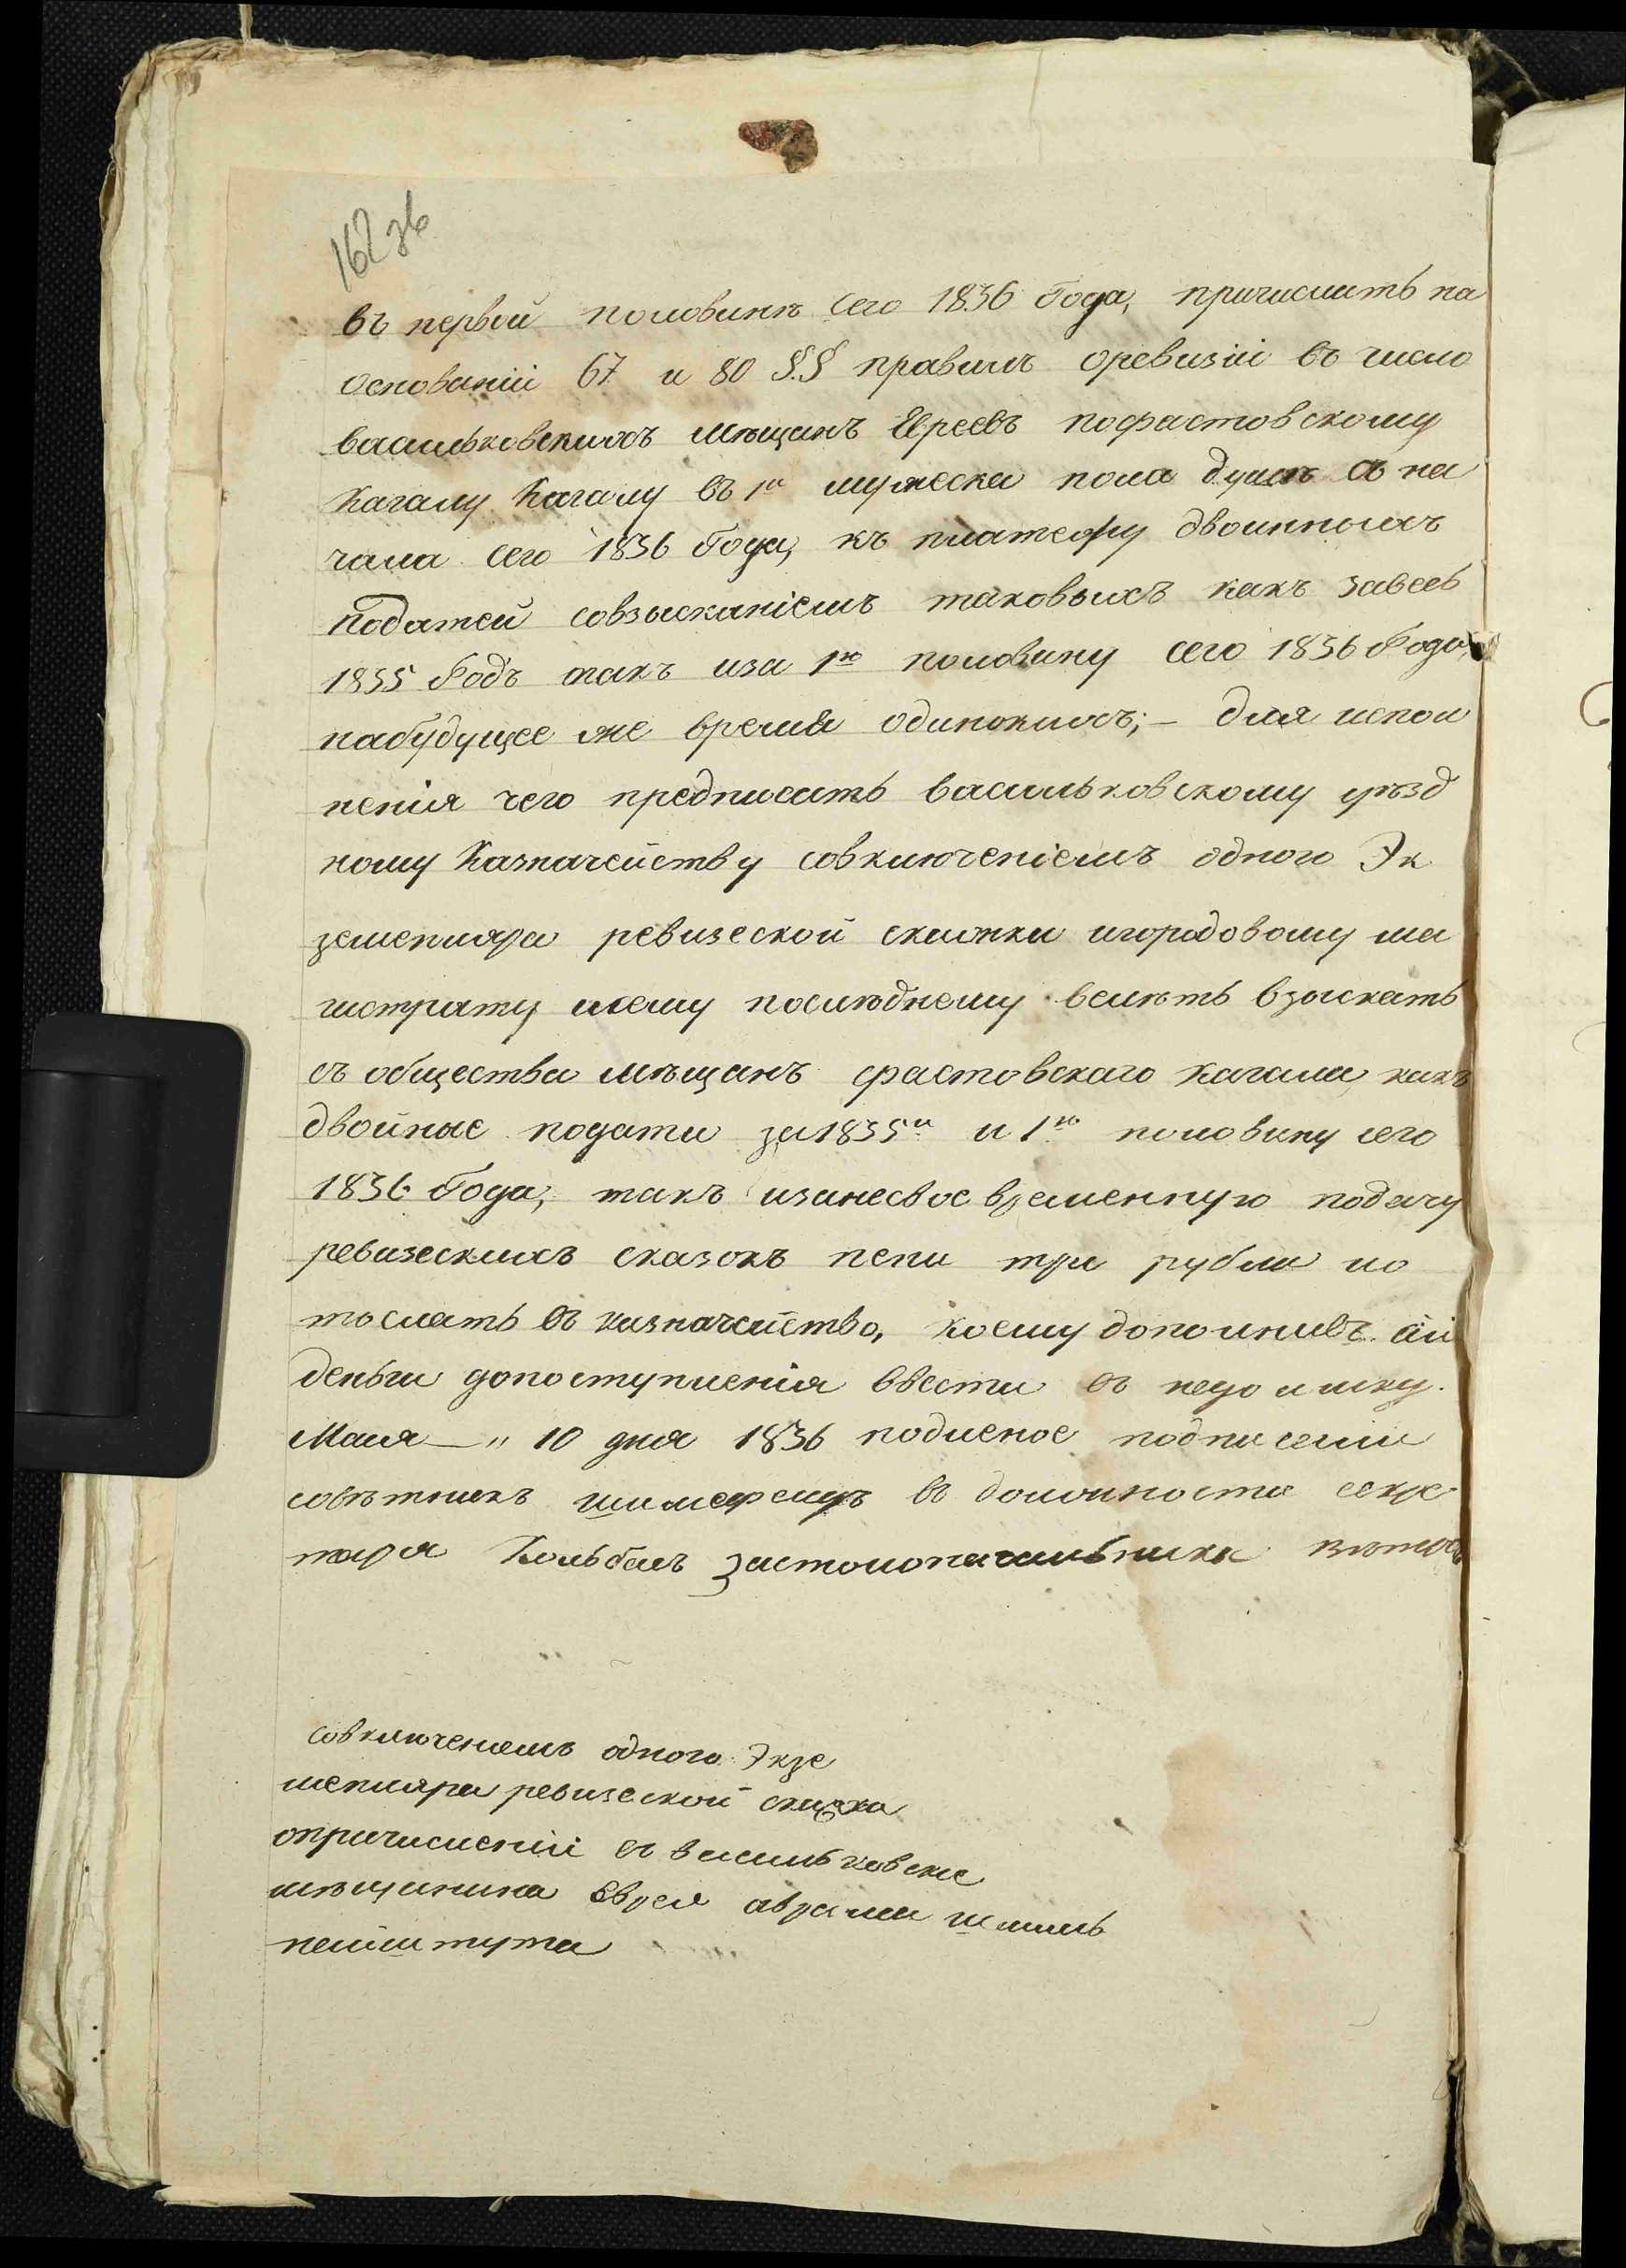 162 зв
въ первой половинѣ сего 1836 Года, причислить на
основаніи 67 и 80 §.§ правилъ оревизіи въ число
васильковскихъ мѣщанъ Евреевъ пофастовскому
Кагалу Кагалу въ 1й мужеска пола душѣ съ на
чала сего 1836 Года, къ платежу двоинныхъ
податей совзысканіемъ таковыхъ какъ завесь
1835 Годъ такъ иза 1ю половину сего 1836 Года,
набудущее же время одинокихъ; – для испол
ненія чего предписать васильковскому уѣзд
ному Казначейству совключеніемъ одного Эк
земпляра ревизской сказки игородовому ма
гистрату коему послѣднему велѣть взыскать
съ общества мѣщанъ фастовскаго Кагала, какъ
двойные подати за 1835й и 1ю половину сего
1836 Года, такъ изанесвоевременную подачу
ревизскихъ сказокъ пени три рубли ио
тослать въ казначейство, коему дополнивъ сіи
деньги допоступленія ввести въ недоимку.
Маія – " 10 дня 1836 подленое подписали
совѣтникъ въ должности секре
таря Застолоначальника
Совключенемъ одного Экзе
мпляра ревизской сказка
опричисленіи въ васильковски
мѣщанина Еврея аврама